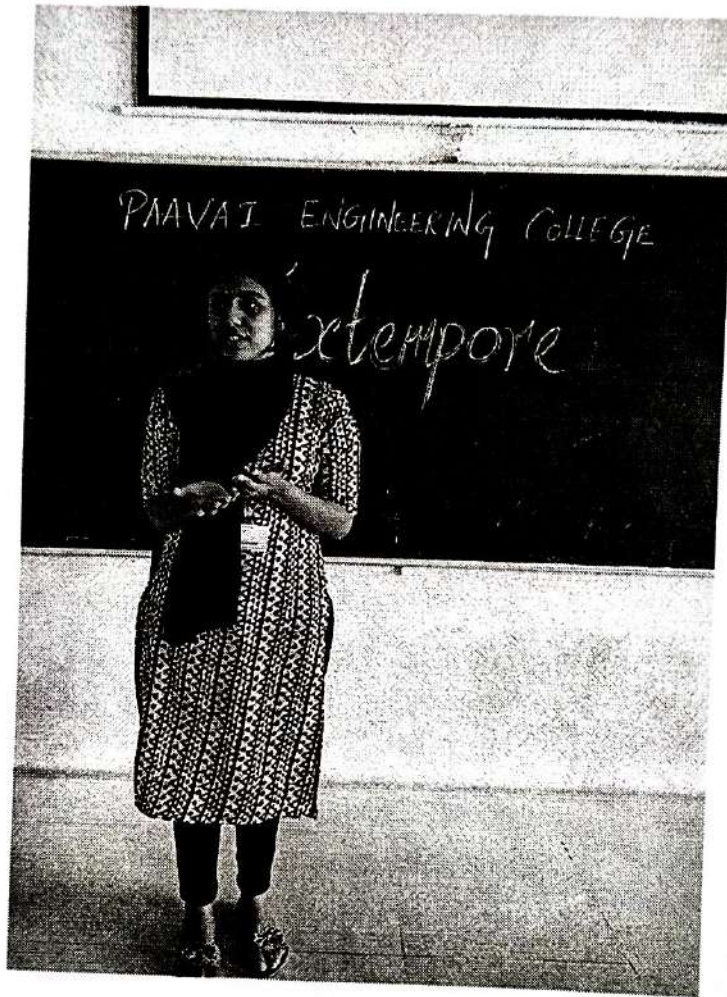 PAAVAI ENGINEERING COLLEGE
Extempore